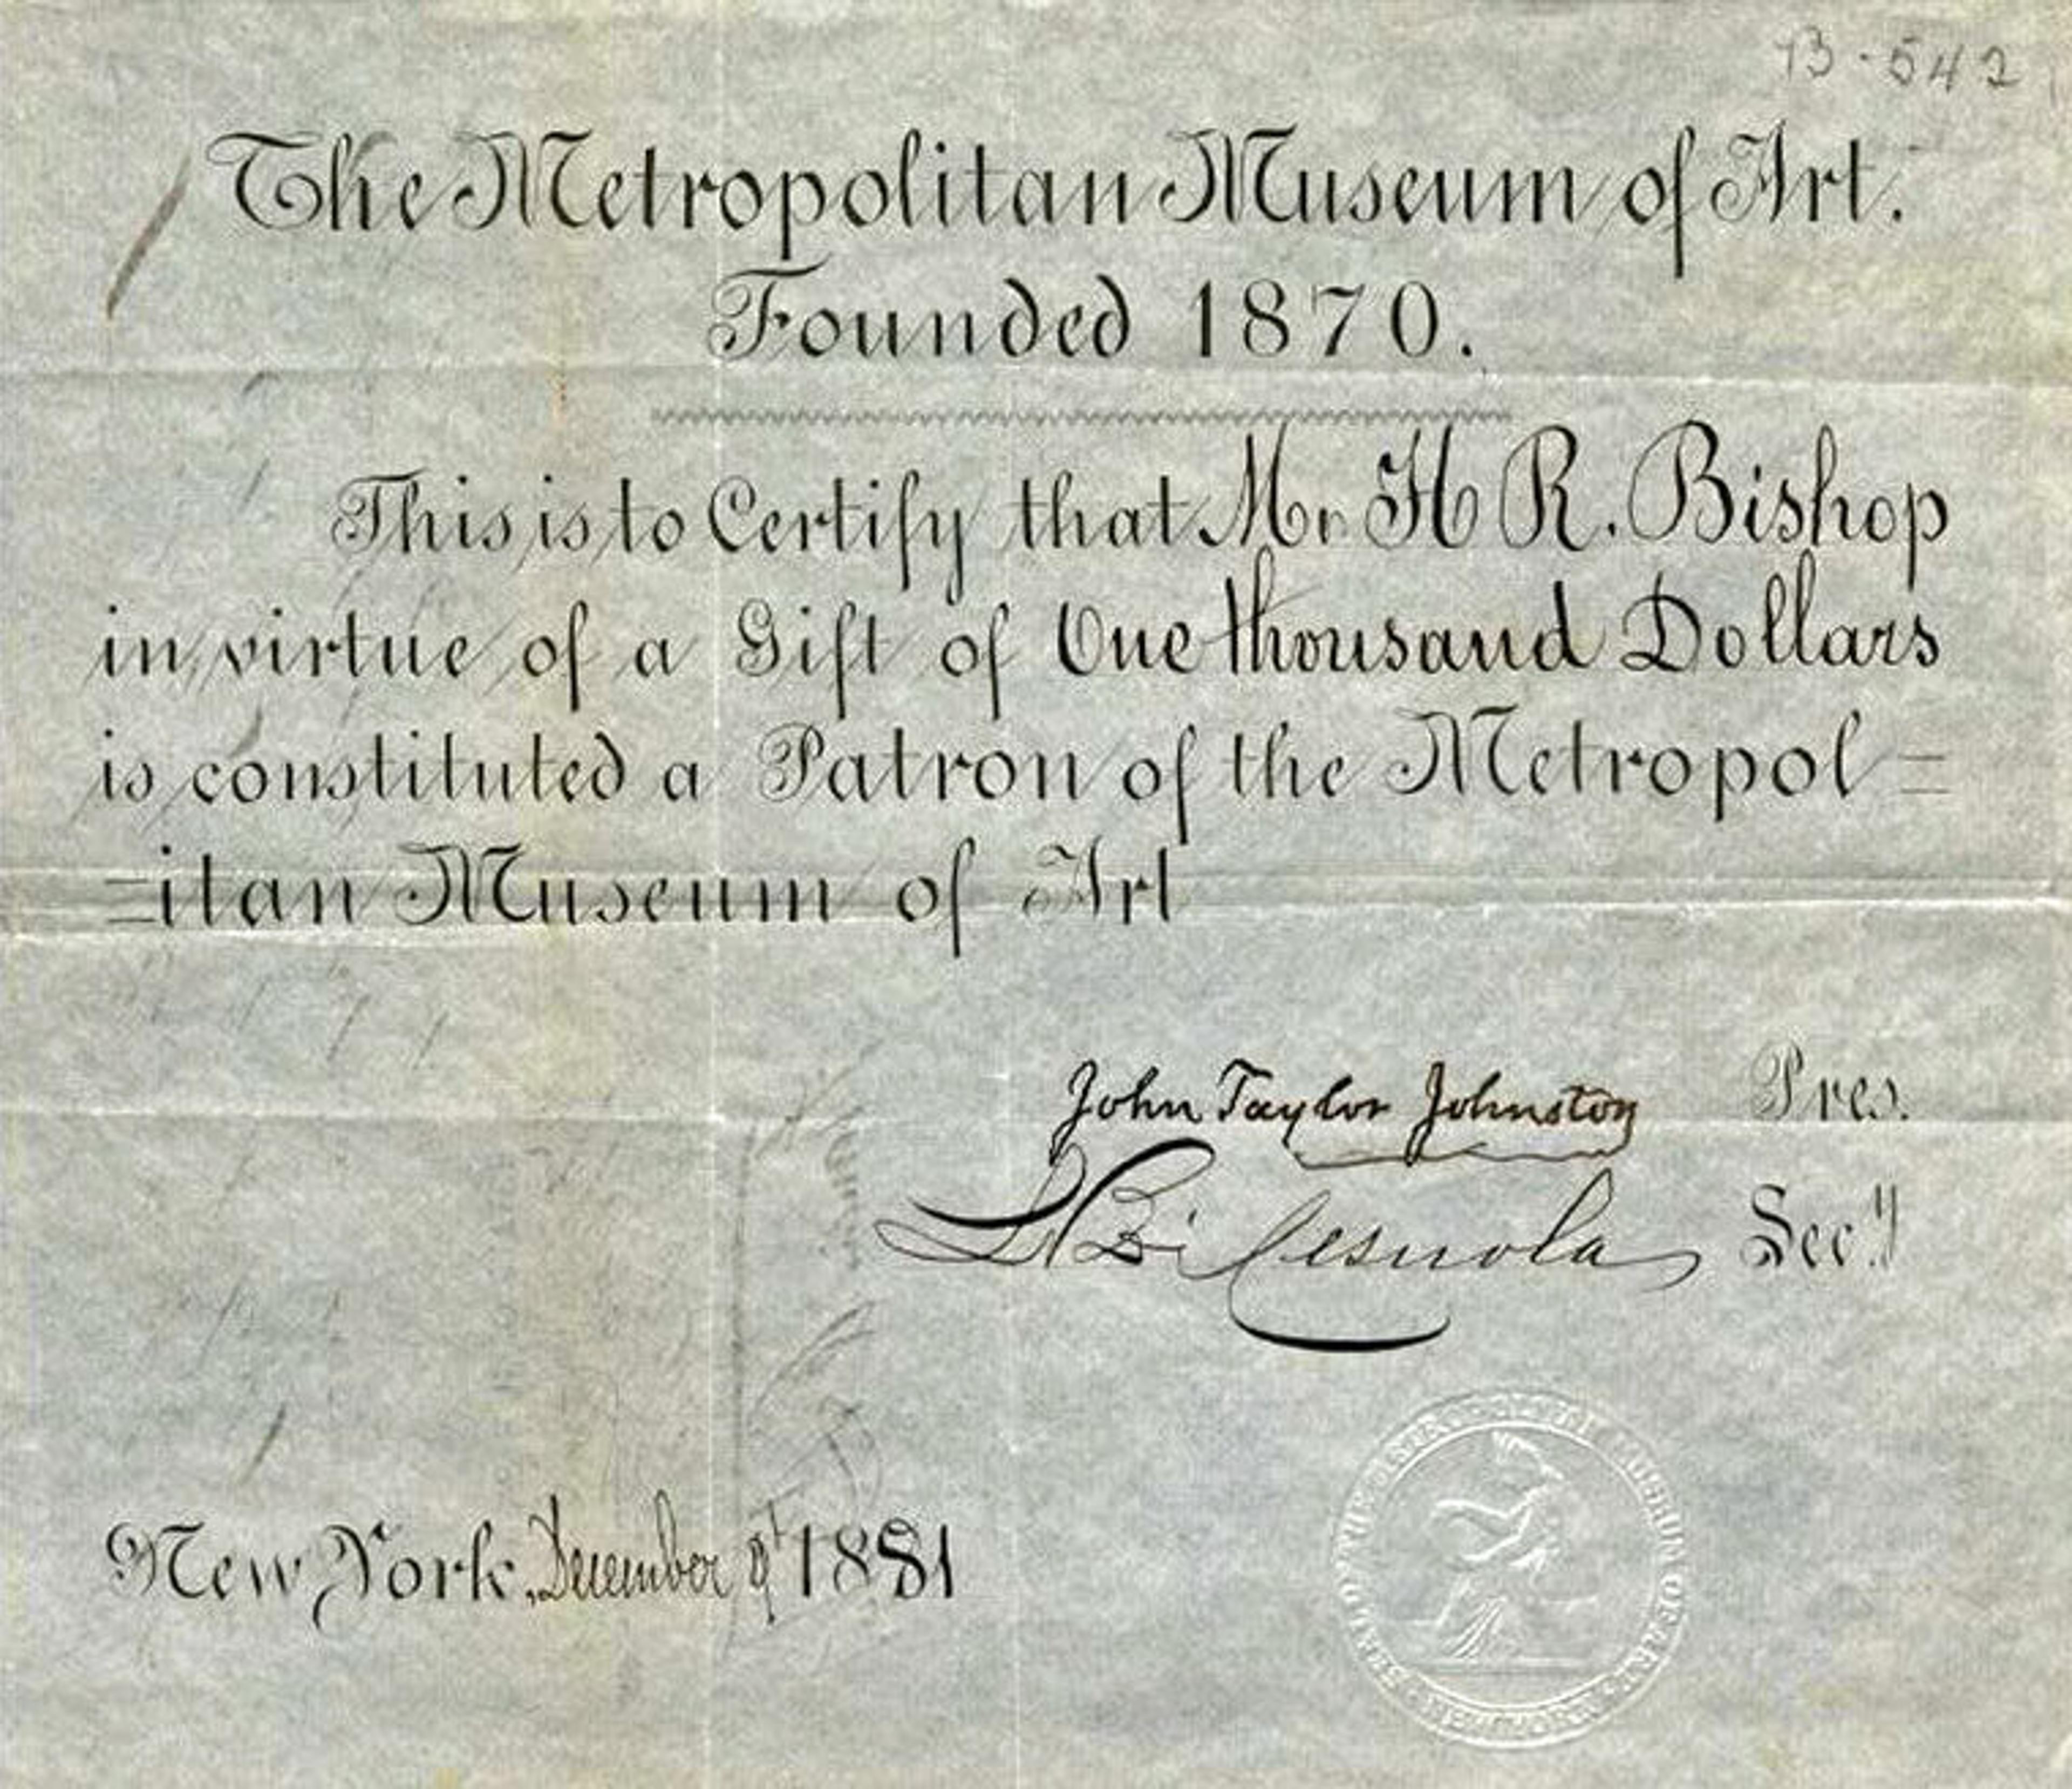 13-542
The Metropolitan Museum of Art.
Founded 1870.
This is to Certify that Mr. H R. Bishop
in virtue of a Gift of One thousand Dollars
is constituted a Patron of the Metropol=
=itan Museum of Art
John Taylor Johnston Pres.
L P Di Cesnola Sec'y
New York, December 9th 1881